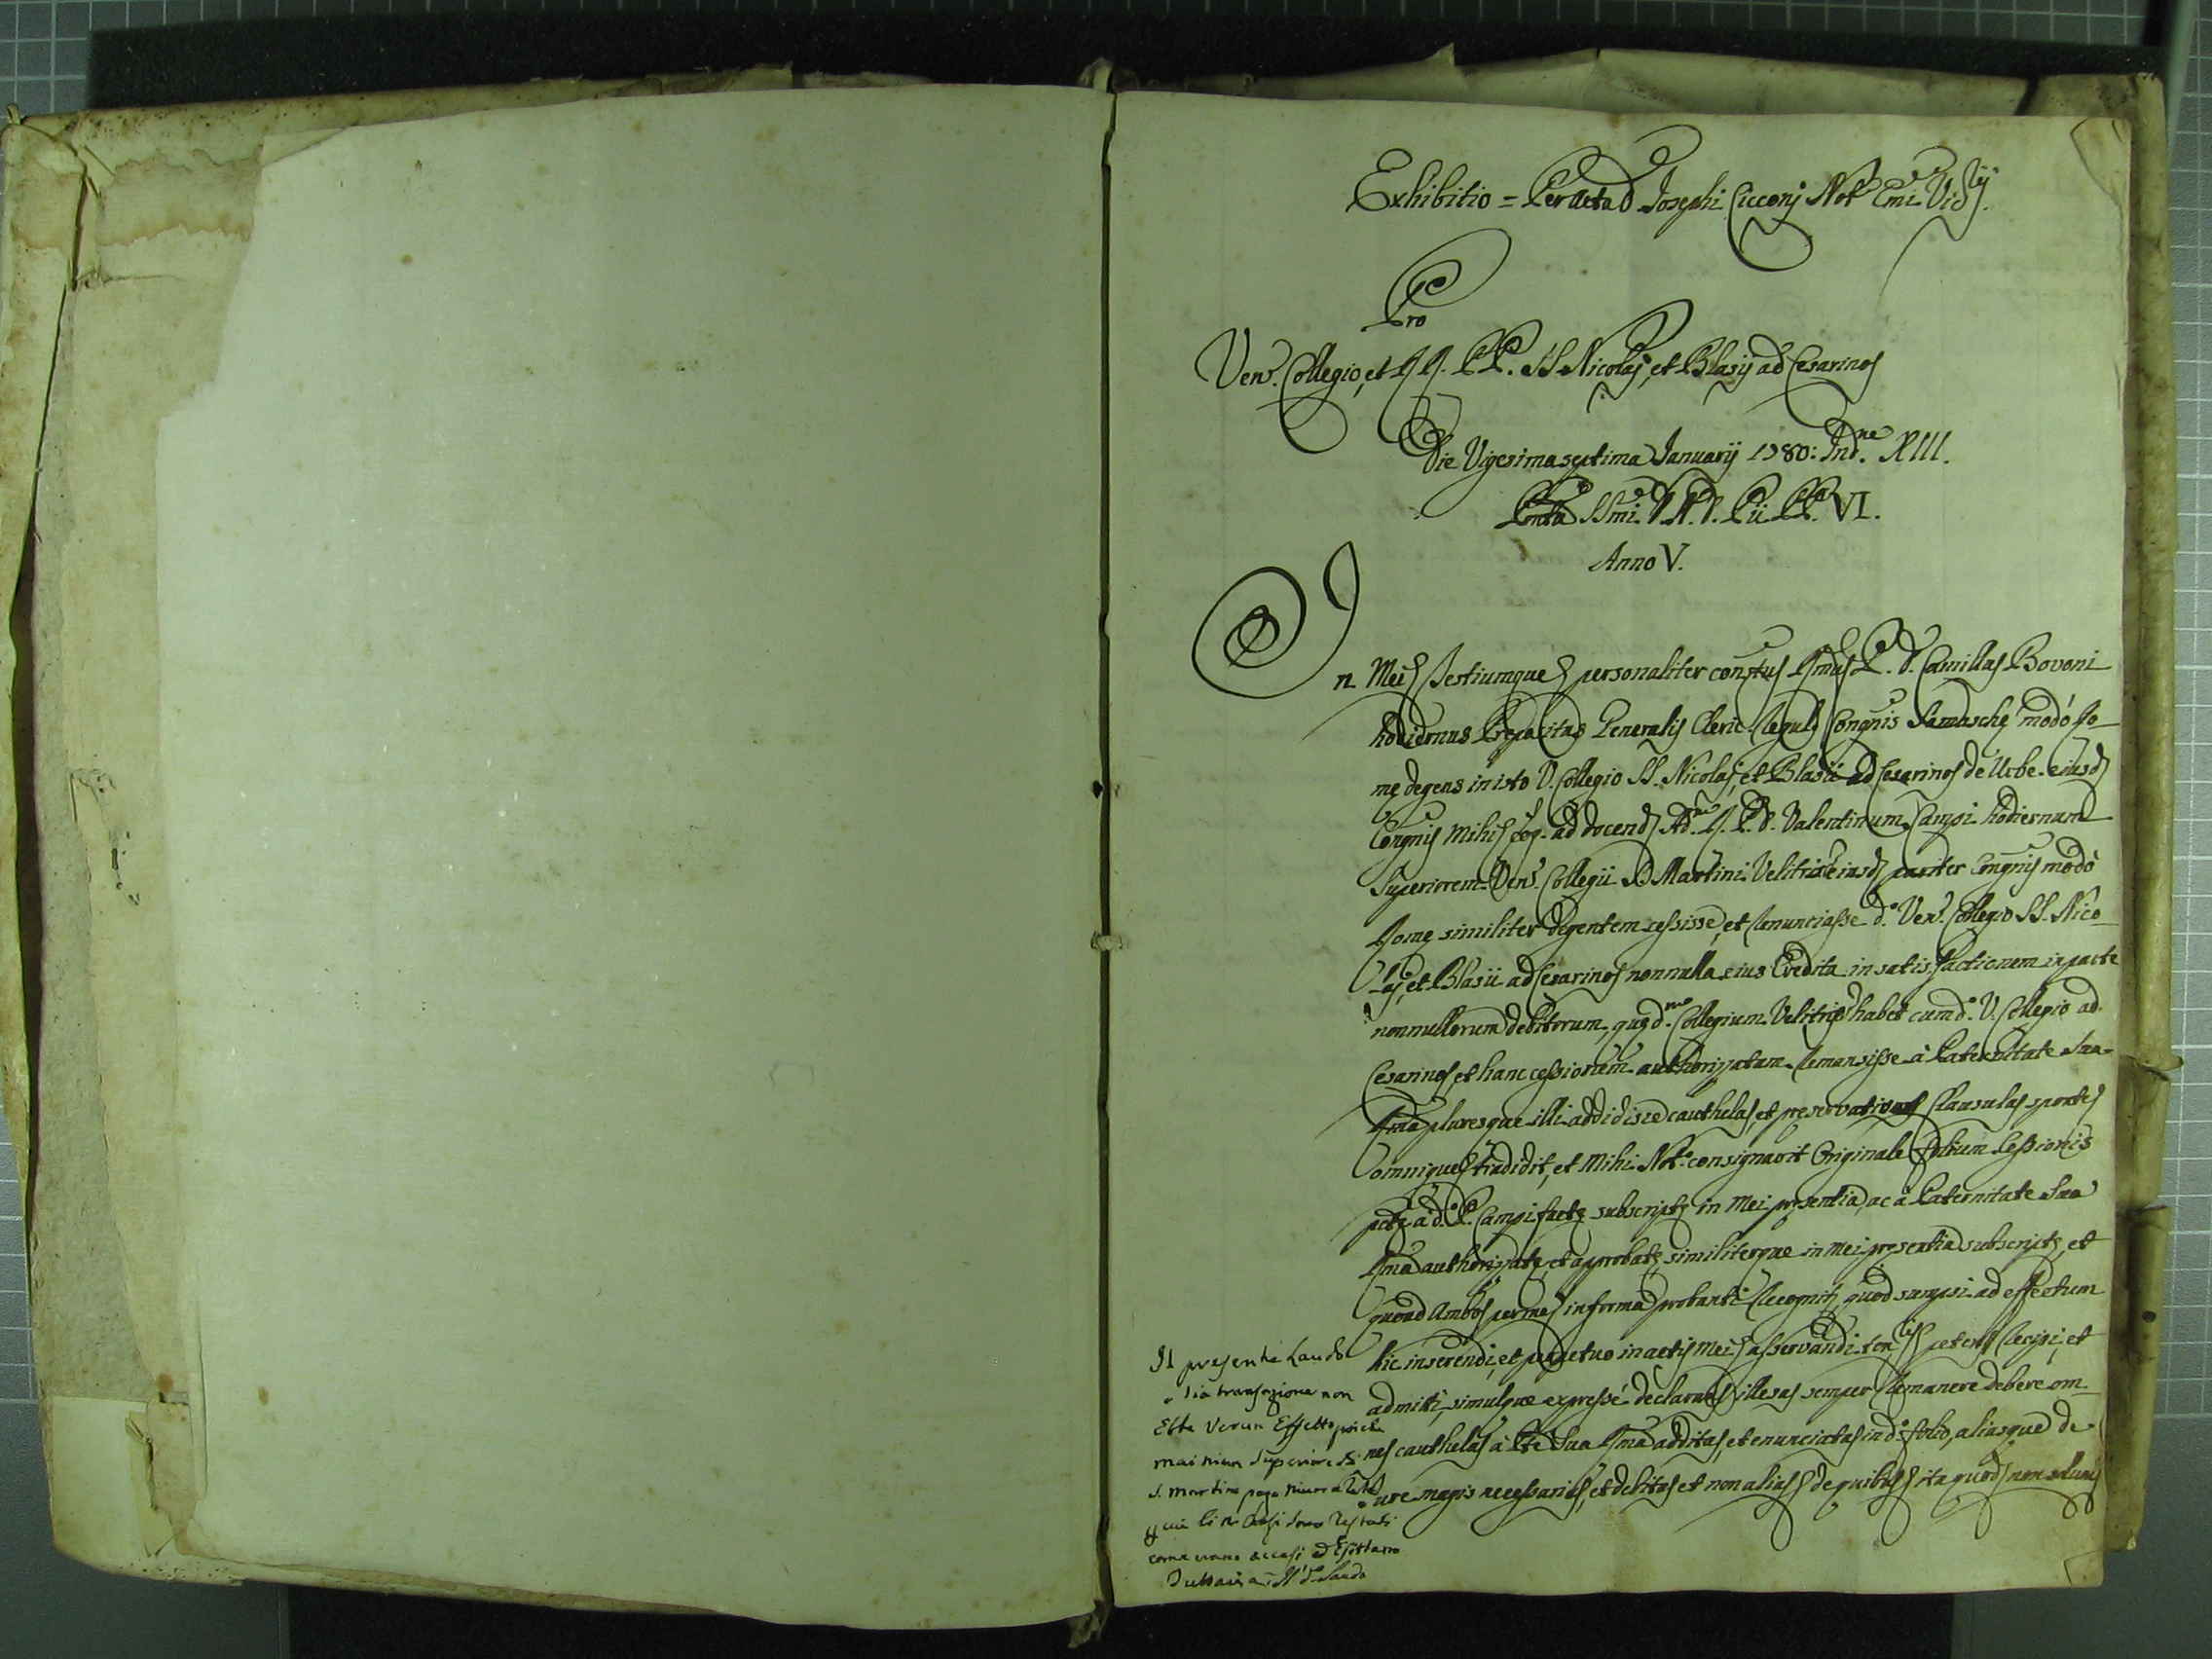 Exhibitio = Per Acta D Josephi Cicconj Not. Emi. Vic.ij
Pro
Ven. Collegio, et RR. PP. SS. Nicolaj, et Blasij ad Cesarinos
Die Vigesimaseptima Januarij 1780: Ind.ne XIII.
Pontus SSmi. D. N. D. Pii PP. VI.
Anno V.
In Mei Testiumque personaliter constus Rmus P. D. Camillus Bovoni
hodiernus Prepositus Generalis Cleric. Regul. Congnis Samasche modò Ro-
me degens in isto V. Collegio SS. Nicolaj, et Blasii ad Cesarinos de Urbe eiusd
Congnis mihi cog. ad docend Ad. R. P. D. Valentinum Campi hodiernum
Superiorem Ven. Collegii S. Martini Velitris eiusd pariter Congnis modò
Rome similiter degentem cessisse, et renunciasse d.o Ven. Collegio SS. Nico-
laj, et Blasii ad Cesarinos nonnulla eius Credita in satisfactionem in parte
nonnullorum debitorum, que d.mo Collegium Velitris habet cum d.o V. Collegio ad
Cesarinos, et hanc cessionem authorizatam remansisse à Paternitate Sua
Rma pluresque illi addidisse cauthelas, et preservativas Clausulas sponte
omnique tradidit, et mihi Not.o consignavit Originale folium Cessionis
pcte à d.o P. Campi facte subscripte in mei presentia, ac à Paternitate Sua
Rma authorizate, et approbate, similiterque in mei presentia subscripte, et
quoad Ambos per me in forma probanti Recognit, quod sumpsi ad effectum
hic inserendi, et perpetuo in actis mei asservandi ten. petens Recipi, et
admitti, simulque expressè declarans illesas semper Remanere debere om-
nes cauthelas à Pte Sua Rma additas, et enunciatas in d.o folio, aliasque de
iure magis necessarias, et debitas et non alias de quibus ita quod non solum
Il presente Laudo
o sia transazione non
Ebbe verun Effetto poiche
mai niun Superiore di
S. Martino pagò niuna
come erano accesi ed Esistano
Tuttavia il d.o Laudo